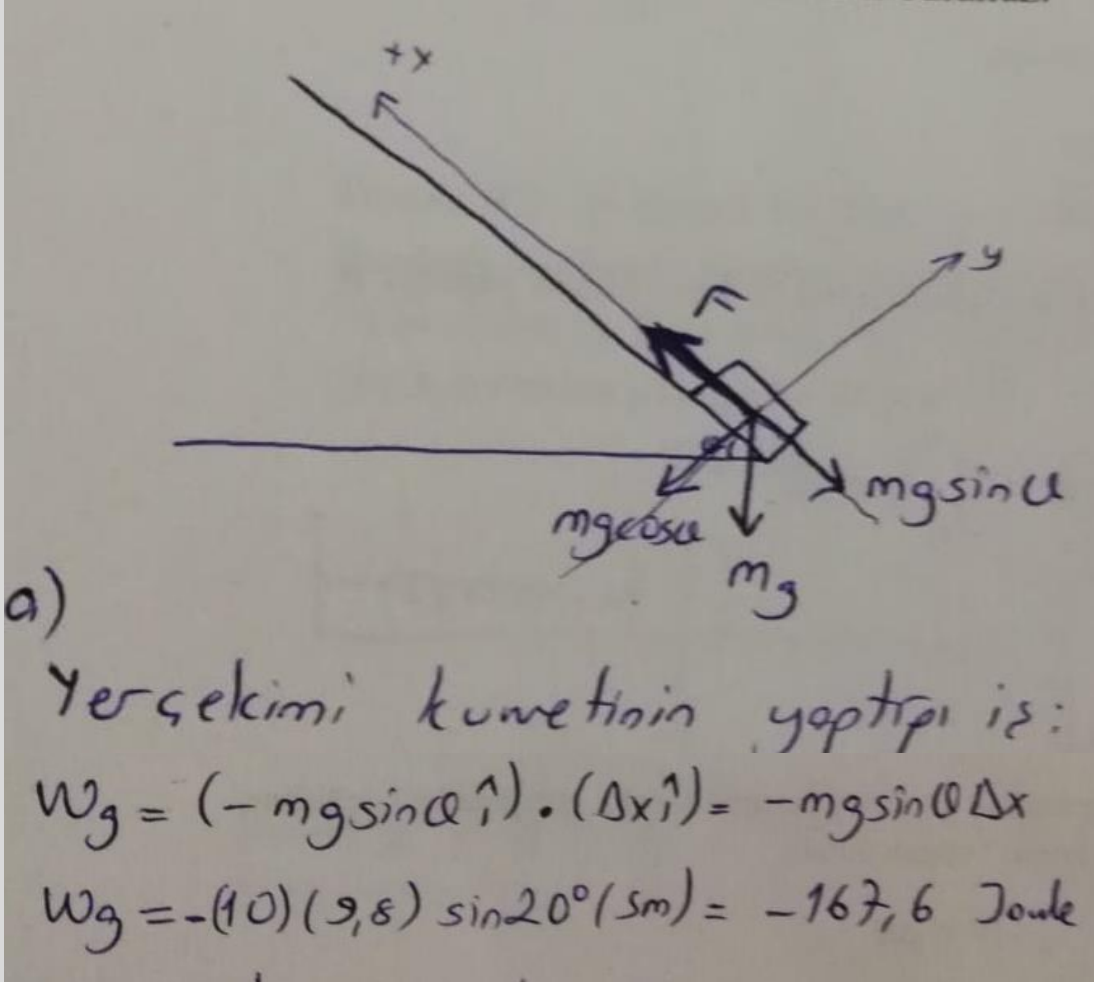 +x
y
F
mgsinθ
mgcosθ
mg
a)
Yerçekimi kuvvetinin yaptığı iş:
Wg = (-mgsinθ î) . (Δx î) = -mgsinθ Δx
Wg = -(10)(9,8) sin20° (5m) = -167,6 Joule